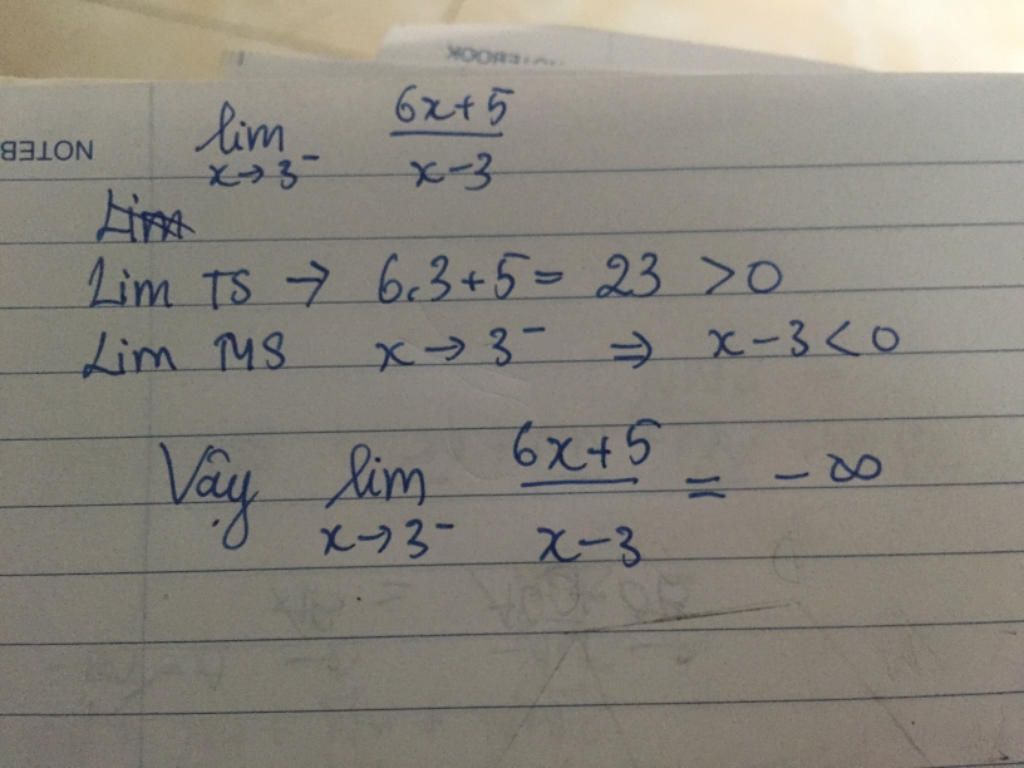 NOTEBOOK
NOTEB
lim x→3⁻ (6x+5)/(x-3)
Lim
Lim TS → 6.3+5 = 23 >0
Lim MS x→3⁻ ⇒ x-3<0
Vậy lim x→3⁻ (6x+5)/(x-3) = -∞